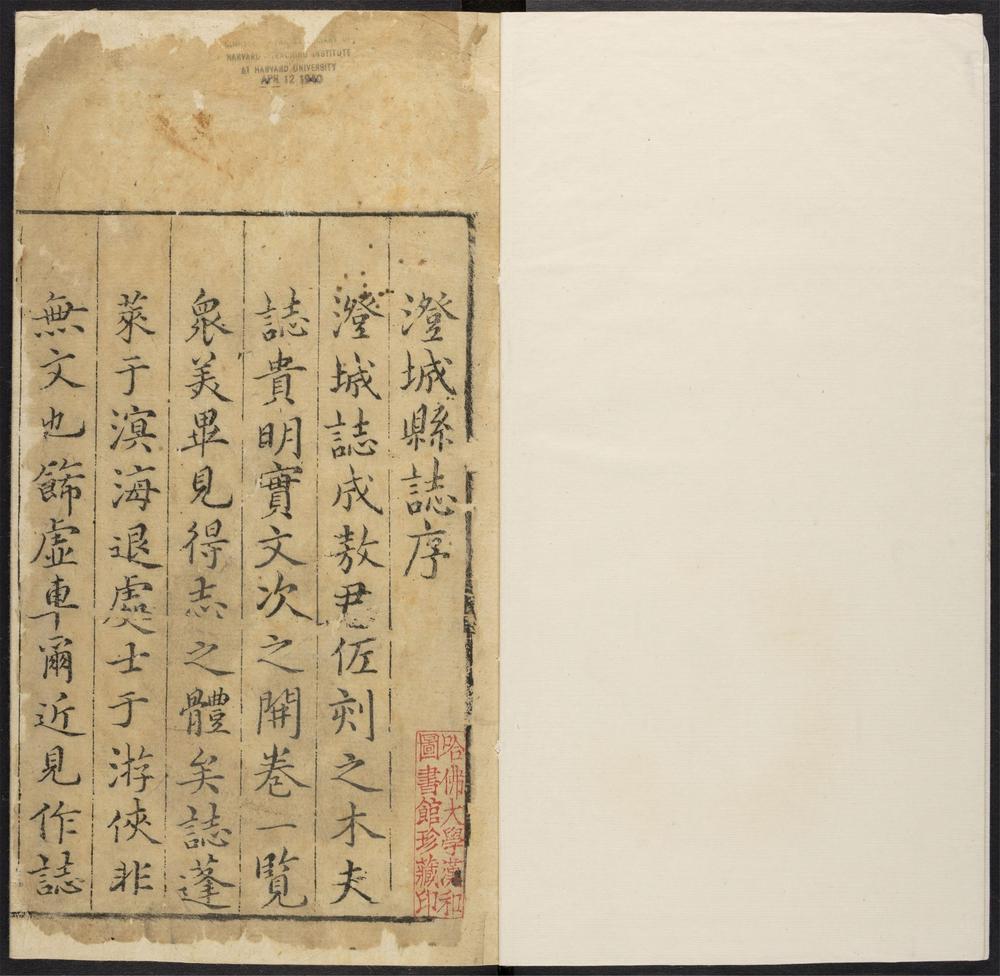 澄城縣誌序
澄城誌成敖君佐刻之木夫
誌貴明實文次之開巻一覧
衆美畢見得志之體矣誌蓬
萊于溟海退處士于游俠非
無文也餙虛車爾近見作誌
哈佛大學漢和
圖書館珍藏印
HARVARD INSTITUTE
AT HARVARD UNIVERSITY
APR 12 1940